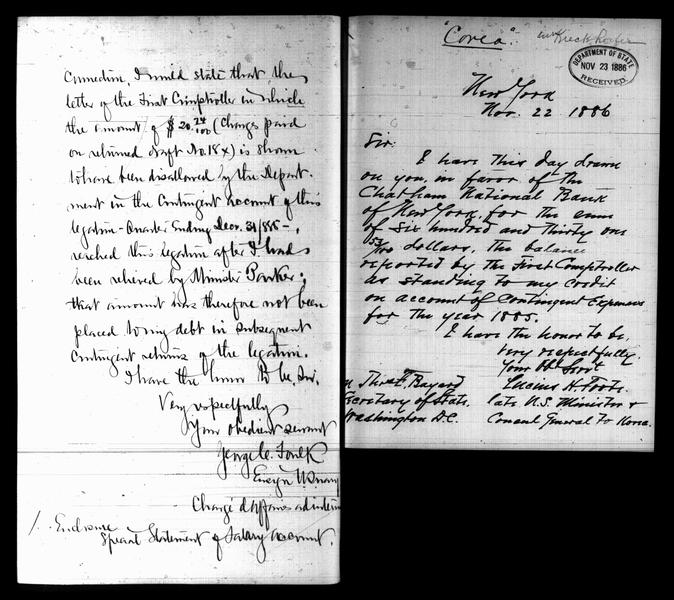 connection, I would state that the
letter of the First Comptroller in which
the amount of $20.24/100 (charges paid
on returned draft No. 18x) is shown
to have been disallowed by the Depart-
ment in the Contingent account of this
legation - Quarter Ending Decr. 31/885 -,
reached this legation after I had
been relieved by Minister Parker;
that amount was therefore not been
placed to my debt in subsequent
contingent returns of the legation.
I have the honor to be, Sir,
Very respectfully
Your obedient servant
George C. Foulk
Ensign U.S. Navy
Chargé d'Affaires ad interim
1. Enclosure
Special Statement of salary account.
"Corea".
DEPARTMENT OF STATE
NOV 23 1886
RECEIVED.
New York
Nov. 22 1886
Sir:
I have this day drawn
on you, in favor of the
Chatham National Bank
of New York, for the sum
of six hundred and thirty one
dollars, the balance
reported by the First Comptroller
as standing to my credit
on account of Contingent Expenses
for the year 1885.
I have the honor to be,
Very respectfully
Your Obt Servt
Lucius H. Foote.
late U.S. Minister &
Consul General to Korea.
Thos. F. Bayard
Secretary of State.
Washington D.C.